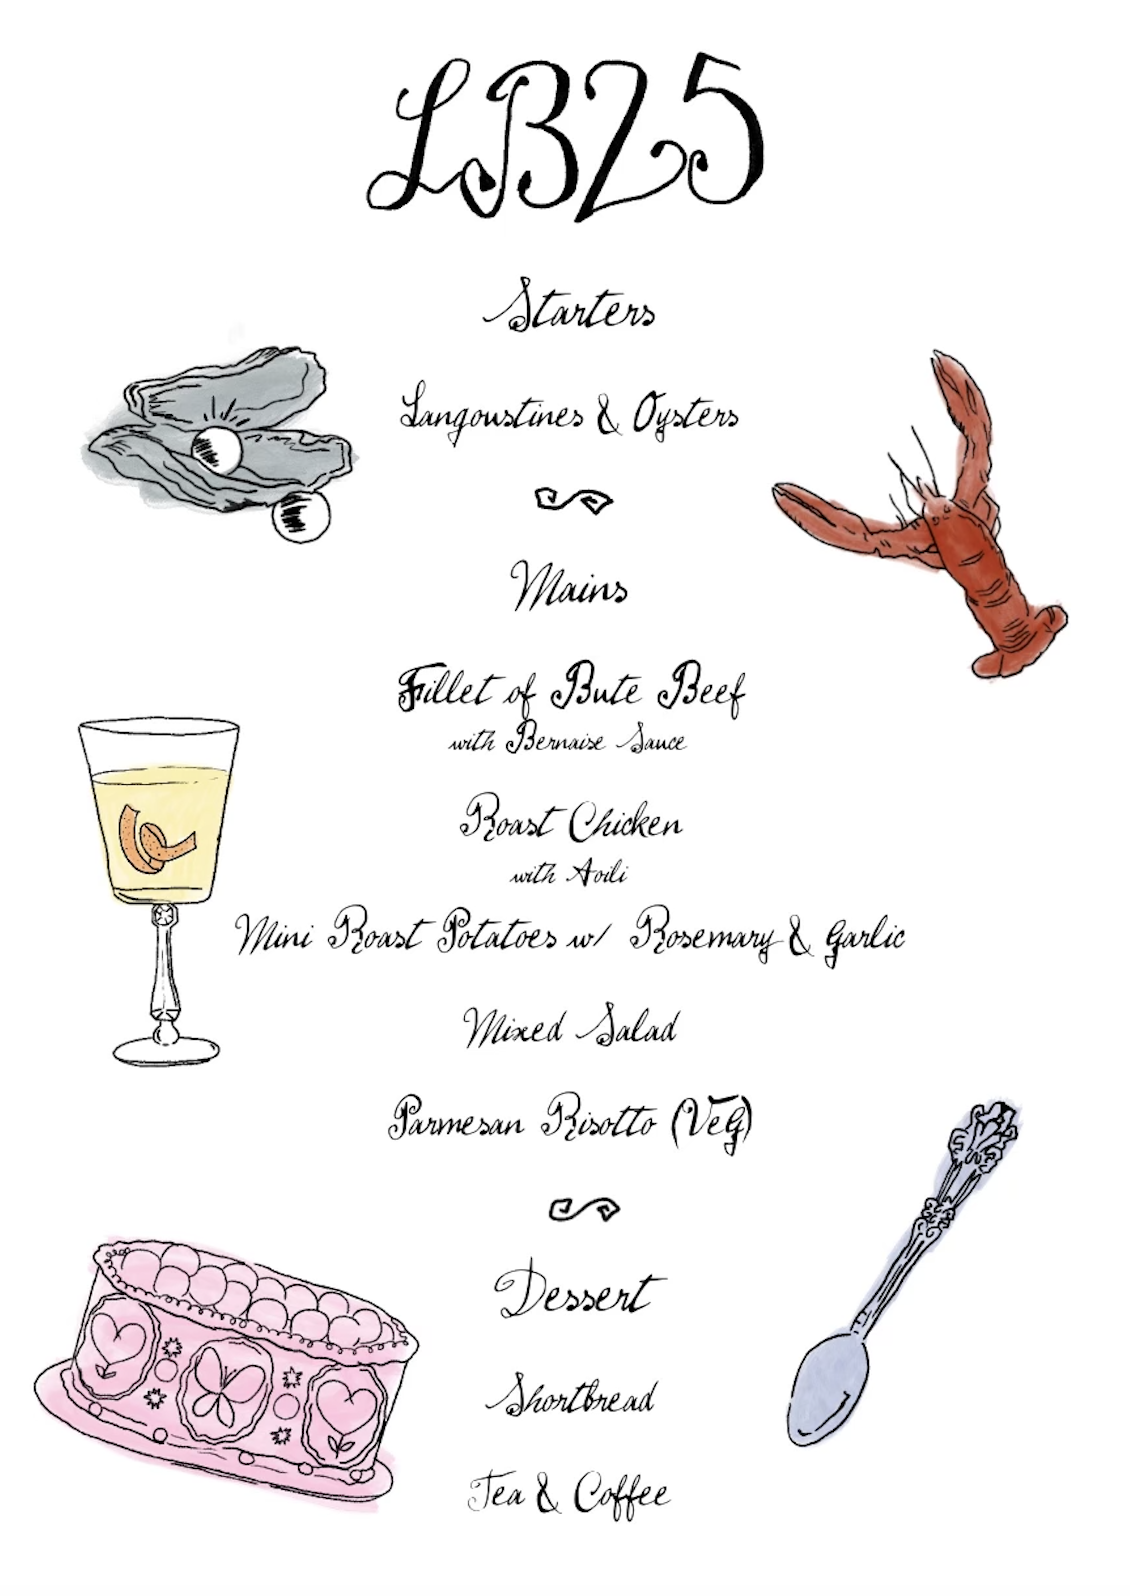 LB25
Starters
Langoustines & Oysters
Mains
Fillet of Bute Beef
with Bernaise Sauce
Roast Chicken
with Aoili
Mini Roast Potatoes w/ Rosemary & Garlic
Mixed Salad
Parmesan Risotto (VeG)
Dessert
Shortbread
Tea & Coffee